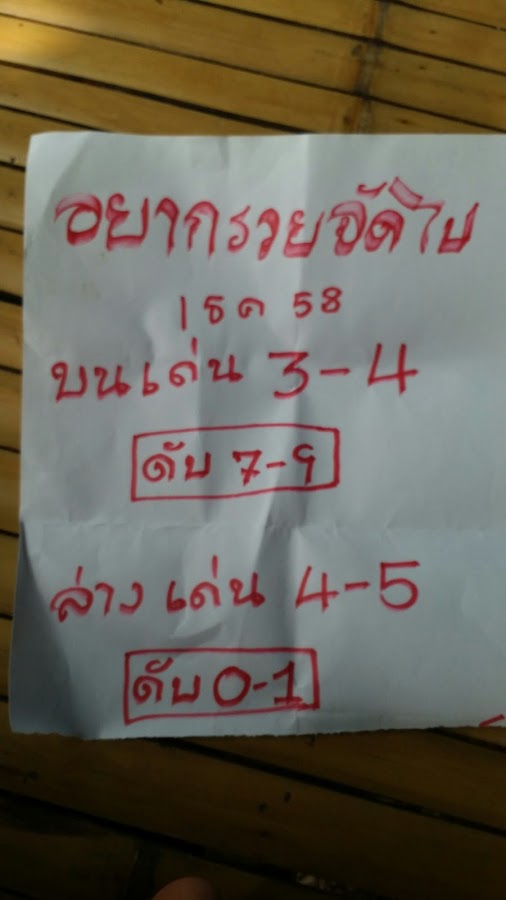 อยากรวยจัดไป
1 ธค 58
บนเด่น 3-4
ดับ 7-9
ล่าง เด่น 4-5
ดับ 0-1